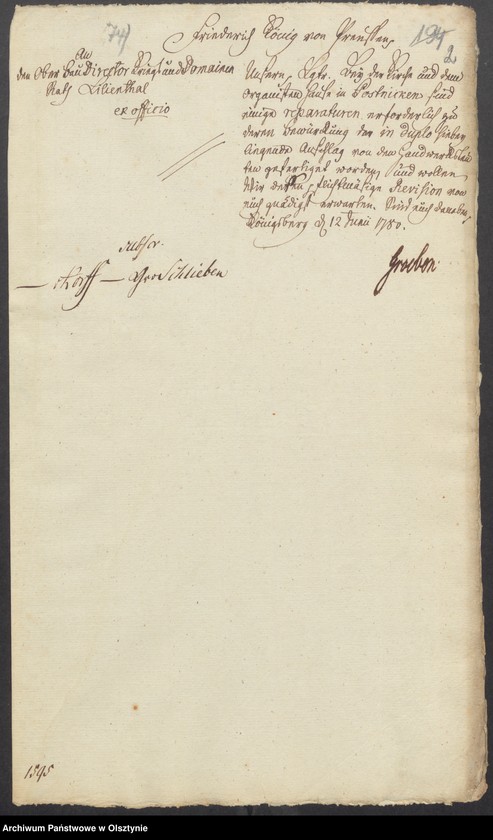 74)
194
2
Friederich König von Preussen,
An
den Ober Bau Director Kriegs und Domainen
Rath Lilienthal
ex officio
Unsern, Bey der Kirche und dem
Organisten Hause in Postnicken sind
einige reparaturen erforderlich zu
deren Bewürckung der in duplo hieben
liegende Anschlag von den Handwercks Leu
ten gefertiget worden, und wollen
Wir dessen pflichtmäsige Revision von
euch gnädigst erwarten. Sind euch
Königsberg d 12 Junii 1780.
Groeben
Korff — Grv Schlieben
1595
Archiwum Państwowe w Olsztynie